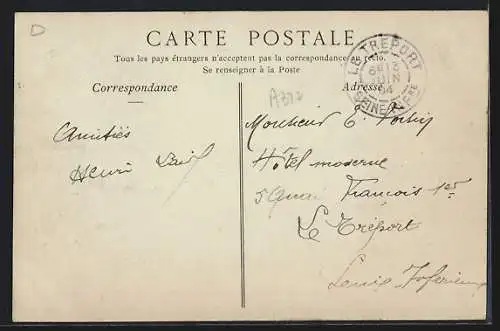 D
CARTE POSTALE
Tous les pays étrangers n'acceptent pas la correspondance au recto.
Se renseigner à la Poste
Correspondance
Adresse
LE TRÉPORT
SEINE
Amitiés
Henri
Monsieur E.
Hôtel moderne
5 Quai François 1er
Le Tréport